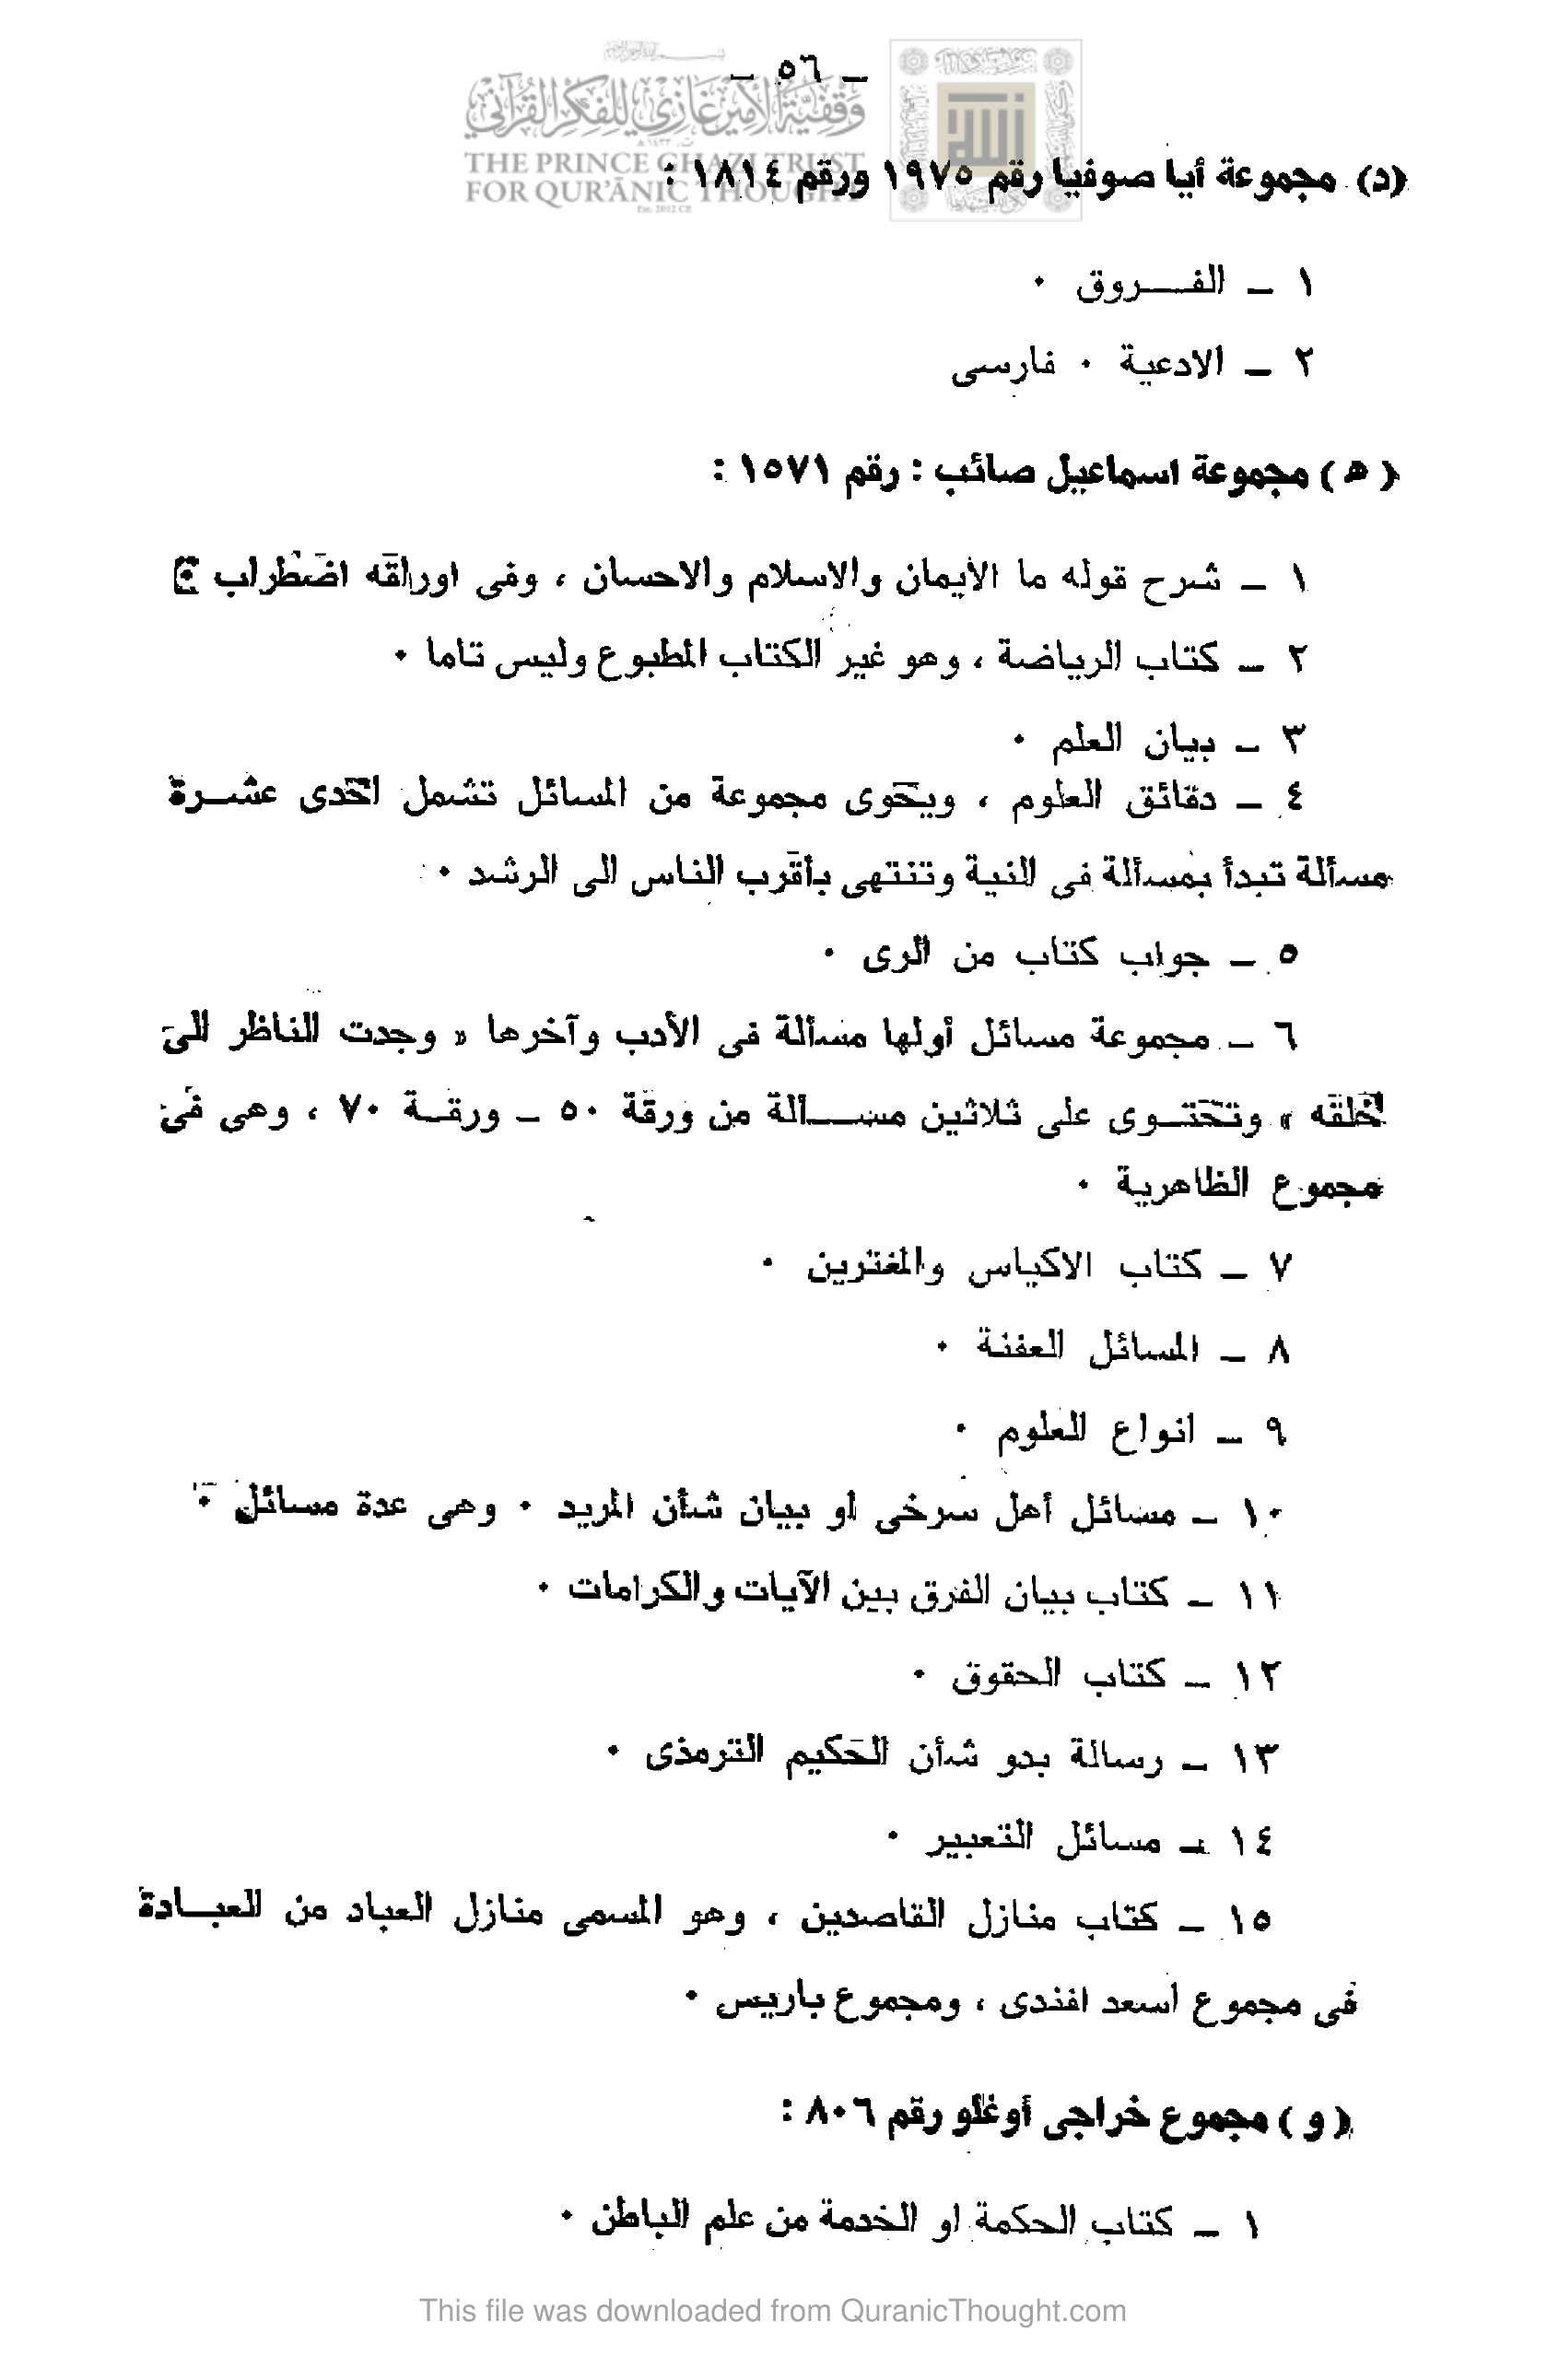 – ٥٦ –
وقفية الأمير غازي للفكر القرآني
THE PRINCE GHAZI TRUST
FOR QUR'ĀNIC THOUGHT
Est. 2012 CE
(د) مجموعة أيا صوفيا رقم ١٩٧٥ ورقم ١٨١٤ :
١ – الفـــروق ٠
٢ – الادعية ٠ فارسى
( ه ) مجموعة اسماعيل صائب : رقم ١٥٧١ :
١ – شرح قوله ما الايمان والاسلام والاحسان ، وفى اوراقه اضطراب ٠
٢ – كتاب الرياضة ، وهو غير الكتاب المطبوع وليس تاما ٠
٣ – بيان العلم ٠
٤ – دقائق العلوم ، ويحوى مجموعة من المسائل تشمل احدى عشـرة
مسألة تبدأ بمسألة فى النية وتنتهى بأقرب الناس الى الرشد ٠
٥ – جواب كتاب من الرى ٠
٦ – مجموعة مسائل أولها مسألة فى الأدب وآخرها « وجدت الناظر الى
خلقه » وتحتـوى على ثلاثين مســألة من ورقة ٥٠ – ورقـة ٧٠ ، وهى فى
مجموع الظاهرية ٠
٧ – كتاب الاكياس والمغترين ٠
٨ – المسائل العفنة ٠
٩ – انواع العلوم ٠
١٠ – مسائل أهل سرخى او بيان شأن المريد ٠ وهى عدة مسائل ٠
١١ – كتاب بيان الفرق بين الآيات والكرامات ٠
١٢ – كتاب الحقوق ٠
١٣ – رسالة بدو شأن الحكيم الترمذى ٠
١٤ – مسائل التعبير ٠
١٥ – كتاب منازل القاصدين ، وهو المسمى منازل العباد من العبـادة
فى مجموع اسعد افندى ، ومجموع باريس ٠
( و ) مجموع خراجى أوغلو رقم ٨٠٦ :
١ – كتاب الحكمة او الخدمة من علم الباطن ٠
This file was downloaded from QuranicThought.com